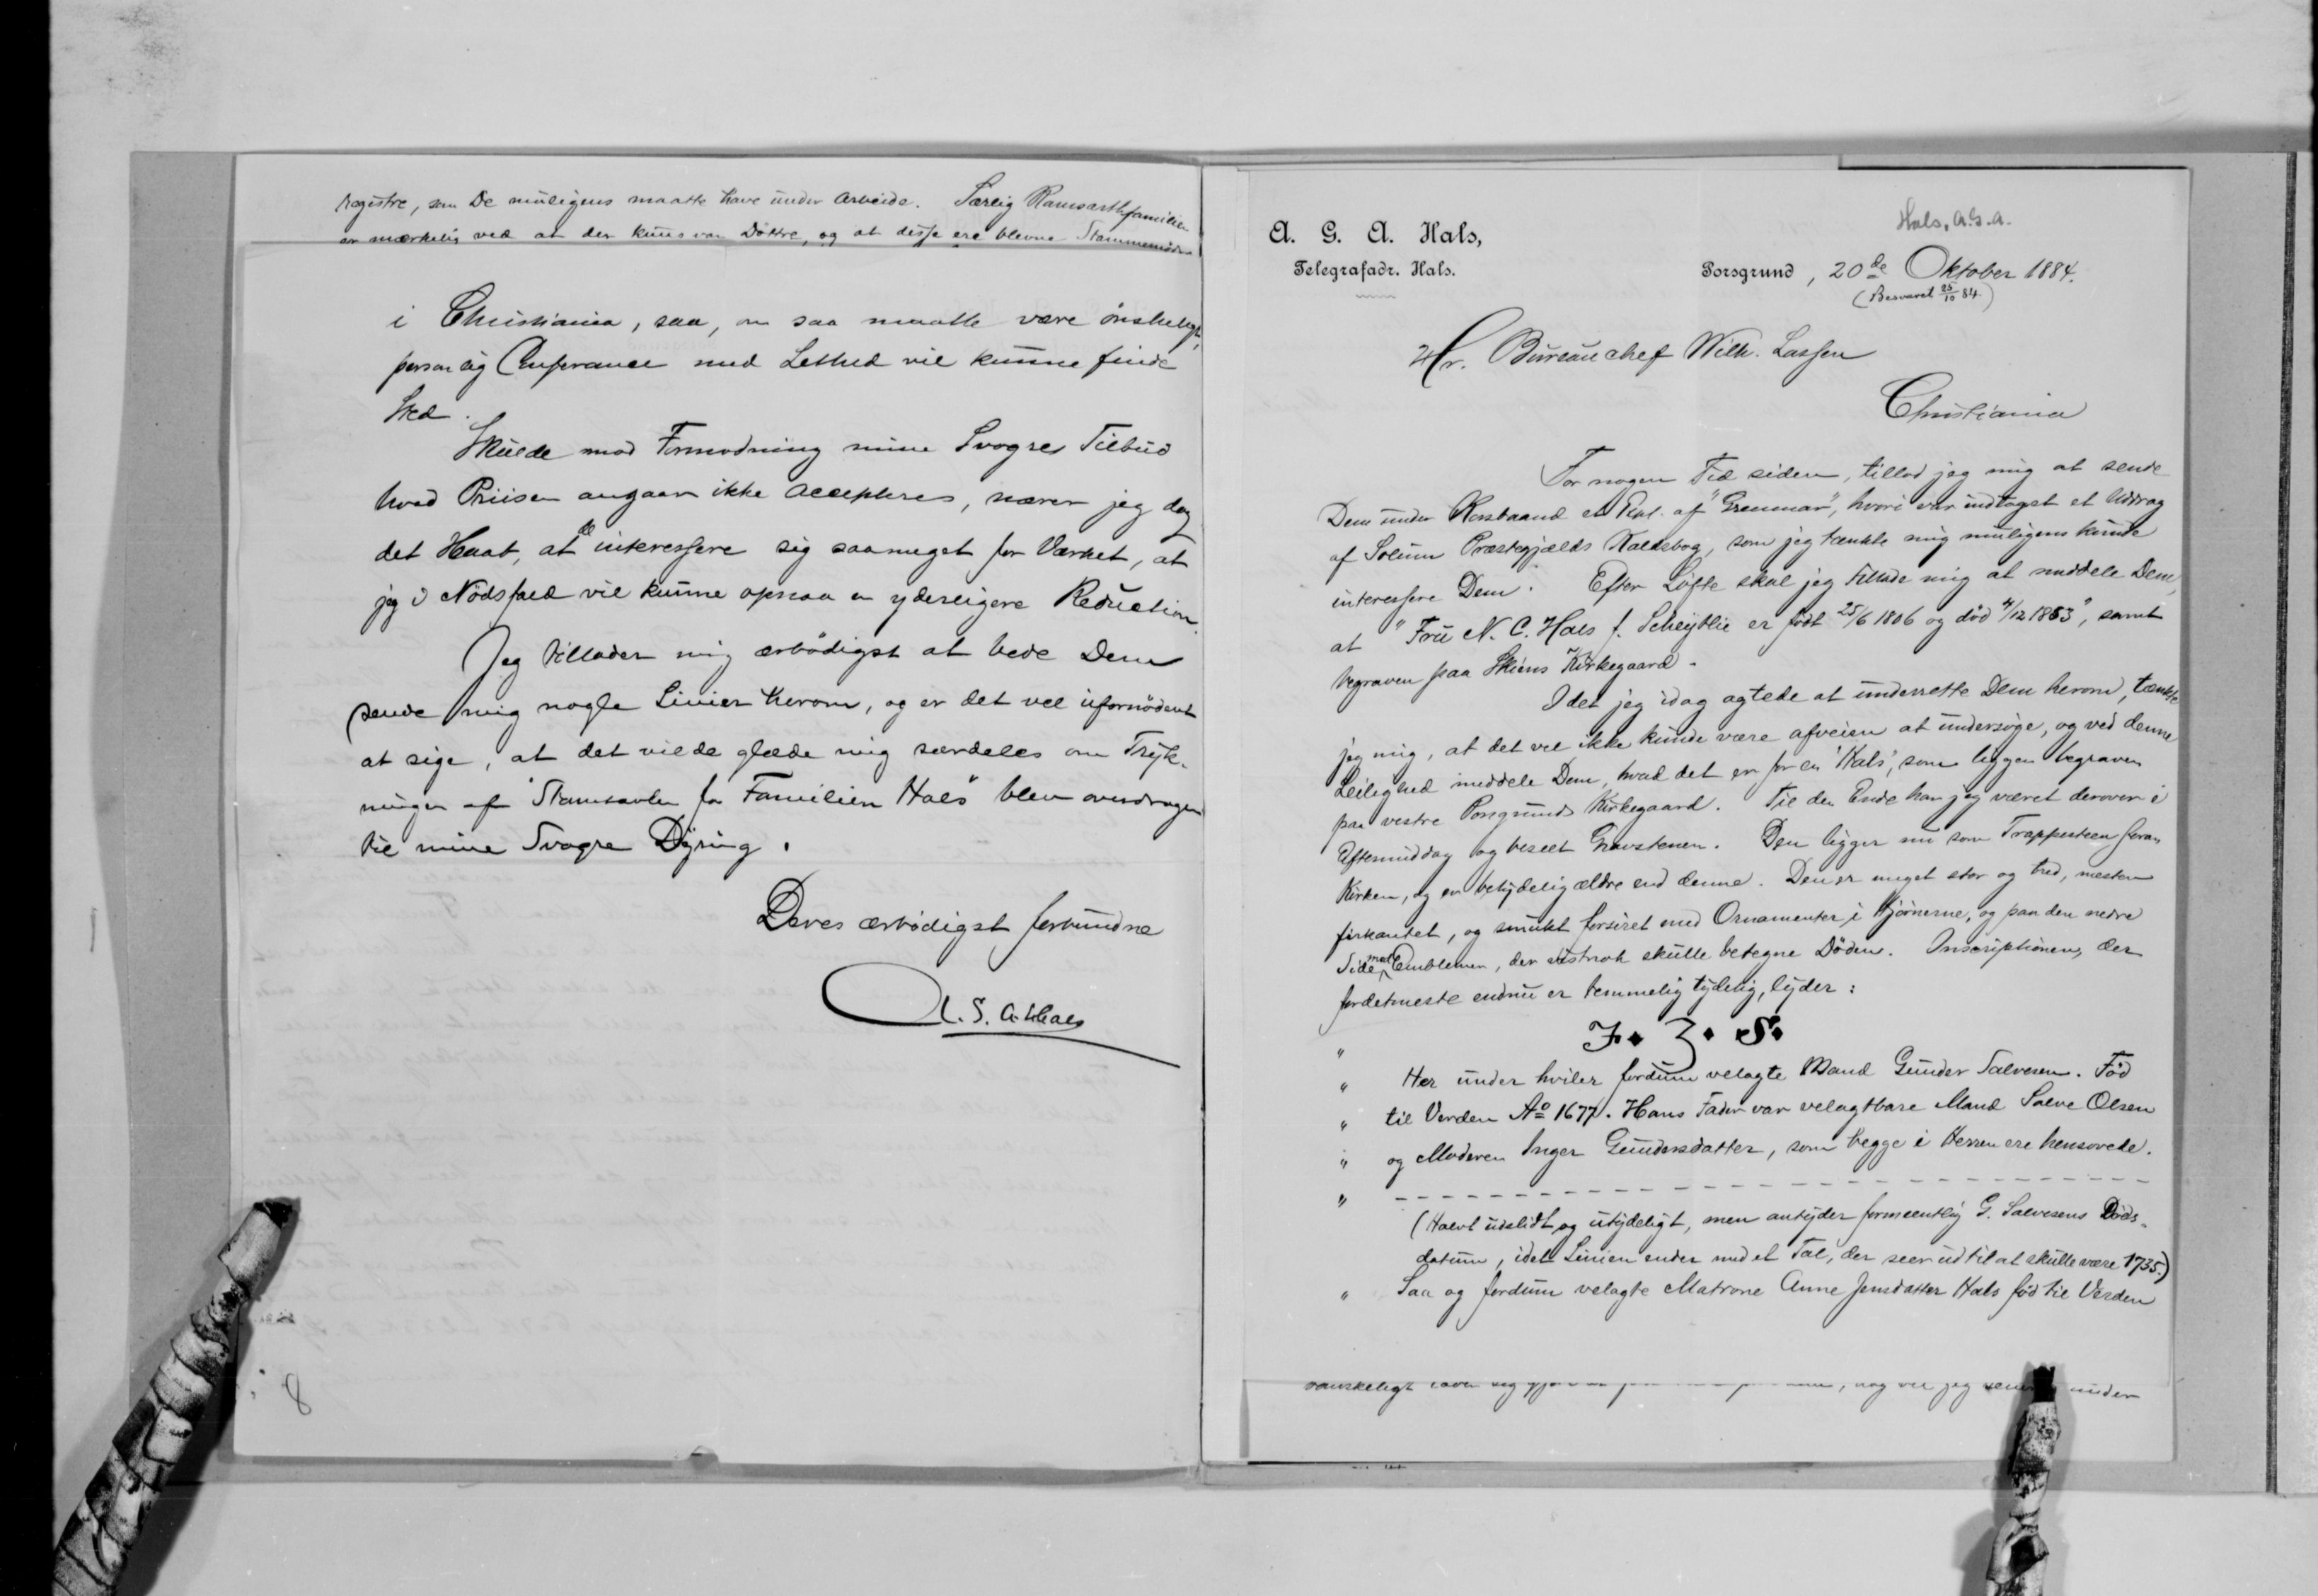 Registre, som De muligens maatte have under Arbeide. Særlig Ramsarthfamilien
er mærkelig ved at der kuns var Döttre, og at disse ere blevne Stammemödre
i Christiania, saa, om saa maatte være önskeligt,
personlig Conferance med Lethed vil kunne finde
Sted.
Skulde mod Formodning mine Svogres Tilbud
hvad Priisen angaar ikke accepteres, nærer jeg dog
det Haab, at de interessere sig saameget for Værket, at
jeg i Nödsfald vil kunne opnaa en yderligere Reduction.
Jeg tillader mig ærbödigst at bede Dem
sende mig nogle Linier herom, og er det vel ufornödent
at sige, at det vilde glæde mig særdeles om Tryk-
ningen af "Stamtavlen for Familien Hals" blev overdragen
til mine Svogre Dyring.
Deres ærbödigst forbundne
A. G. A. Hals
8
Hals, A.G.A.
A. G. A. Hals,
Telegrafadr. Hals.
Porsgrund, 20de Oktober 1884.
(Besvaret 25/10 84.)
Hr. Bureauchef Wilh. Lassen
Christiania
For nogen Tid siden, tillod jeg mig at sende
Dem under Korsbaand et Expl. af "Grenmar", hvori var indtaget et Uddrag
af Solum Præstegjælds Kaldsbog, som jeg tænkte mig muligens kunde
interessere Dem. Efter Löfte skal jeg tillade mig at meddele Dem,
at "Fru N. C. Hals f. Scheijtlie er födt 25/6 1806 og död 4/12 1863", samt
begraven paa Skiens Kirkegaard.
Idet jeg idag agtede at underrette Dem herom, tænkte
jeg mig, at det vel ikke kunde være afveien at undersöge, og ved denne
Leilighed meddele Dem, hvad det er for en "Hals", som ligger begraven
paa vestre Porsgrunds Kirkegaard. Til den Ende har jeg været derover i
Eftermiddag og beseet Gravstenen. Den ligger nu som Trappesteen foran
Kirken, og er betydelig ældre end denne. Den er meget stor og bred, næsten
firkantet, og smukt forsiret med Ornamenter i Hjörnerne, og paa den nedre
Side med Emblemer, der vistnok skulle betegne Döden. Inscriptionen, der
fordetmeste endnu er temmelig tydelig, lyder:
" J. H. S.
" Her under hviler fordum velagte Mand Gunder Salvesen. Föd
" til Verden Aº 1677. Hans Fader var velagtbare Mand Salve Olsen
" og Moderen Inger Gundersdatter, som begge i Herren ere hensovede.
" - - - - - - - - - - - - - - - - - - - - - - - -
(Halvt udslidt og utydeligt, men antyder formeentlig G. Salvesens Döds-
datum, idet Linien ender med et Tal, der seer ud til at skulle være 1735.)
" Saa og fordum velagte Matrone Anne Jensdatter Hals föd til Verden
vanskeligt lader sig